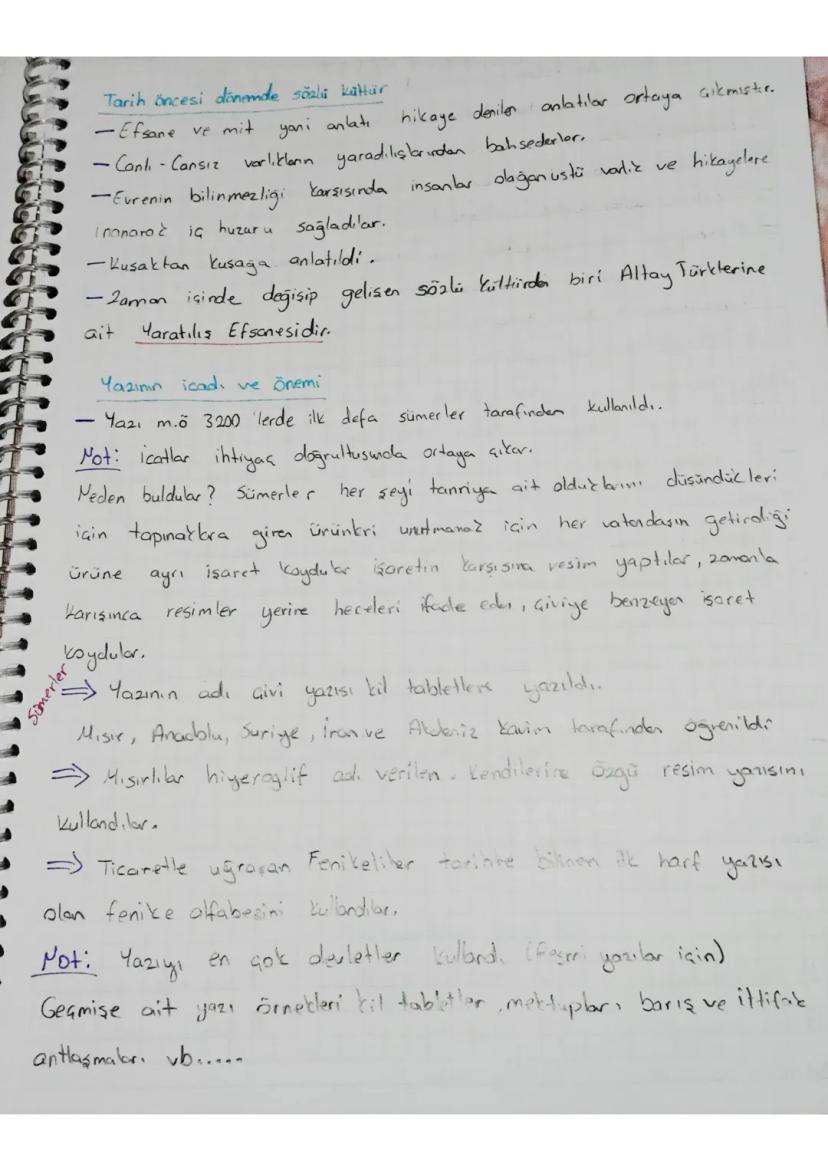 Tarih öncesi dönemde sözlü kültür
— Efsane ve mit yani anlatı hikaye denilen anlatılar ortaya çıkmıştır.
— Canlı - Cansız varlıkların yaradılışlarından bahsederler.
— Evrenin bilinmezliği karşısında insanlar olağanüstü varlık ve hikayelere
inanarak iç huzuru sağladılar.
— Kuşaktan kuşağa anlatıldı.
— Zaman içinde değişip gelişen sözlü kültürden biri Altay Türklerine
ait Yaratılış Efsanesidir.
Yazının icadı ve önemi
— Yazı m.ö 3200 'lerde ilk defa sümerler tarafından kullanıldı.
Not: icatlar ihtiyaç doğrultusunda ortaya çıkar.
Neden buldular? Sümerler her şeyi tanrıya ait olduklarını düşündükleri
için tapınaklara giren ürünleri unutmamak için her vatandaşın getirdiği
ürüne ayrı işaret koydular işaretin karşısına resim yaptılar, zamanla
karışınca resimler yerine heceleri ifade eden, çiviye benzeyen işaret
koydular.
Sümerler
⇒ Yazının adı çivi yazısı kil tabletlere yazıldı.
Mısır, Anadolu, Suriye, İran ve Akdeniz kavim tarafından öğrenildi
⇒ Mısırlılar hiyeroglif adı verilen. kendilerine özgü resim yazısını
kullandılar.
⇒ Ticaretle uğraşan Fenikeliler tarihte bilinen ilk harf yazısı
olan fenike alfabesini kullandılar.
Not: Yazıyı en çok devletler kullandı (Resmi yazılar için)
Geçmişe ait yazı örnekleri kil tabletler, mektuplar, barış ve ittifak
antlaşmaları vb.....